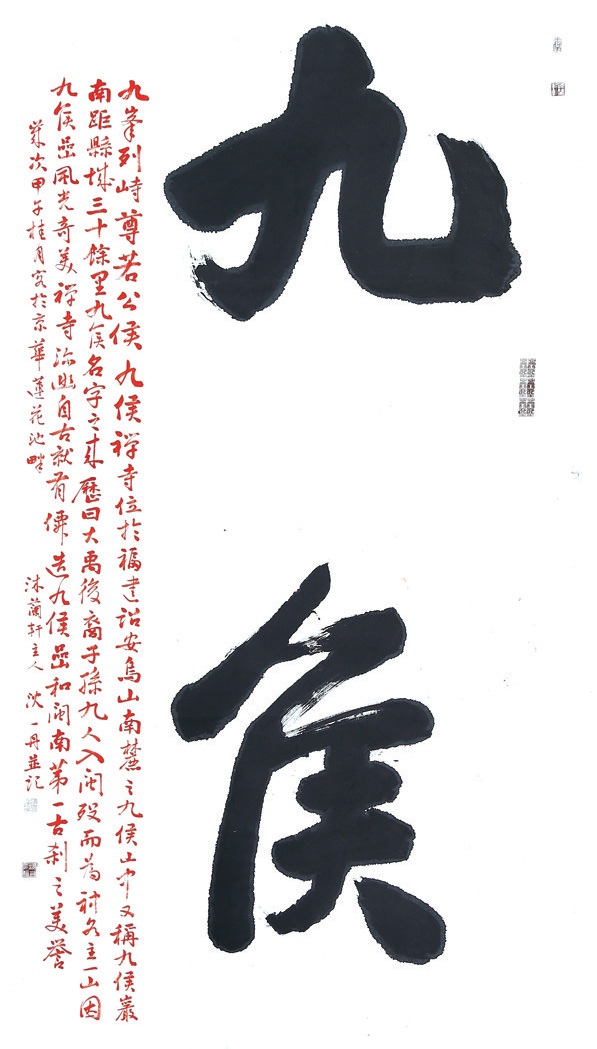 九侯
九峯列峙尊若公侯九侯禪寺位於福建詔安烏山南麓之九侯山中又稱九侯巖
南距縣城三十餘里九侯名字之来歷曰大禹後裔子孫九人入闽歿而為神各主一山因
九侯嵒風光奇美禪寺幽自古就有造九侯嵒和闽南第一古刹之美誉
歲次甲午桂月客於京華蓮花池畔
沐蘭軒主人 沈一丹並記